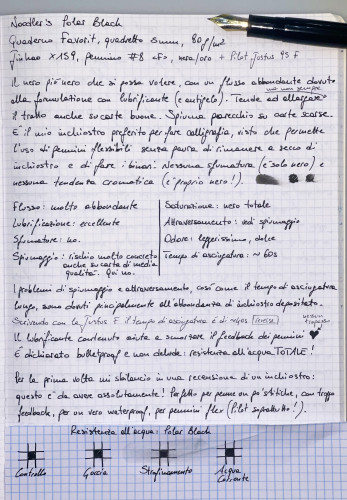 Noodler's Polar Black
Quaderno Favorit, quadretto 5mm, 80g/m²
Jinhao X159, pennino #8 <F>, nera/oro + Pilot Justus 95 F
Il nero più nero che si possa volere, con un flusso abbondante dovuto
alla formulazione con lubrificante (e antigelo). Tende ad allargare
ma non sempre
il tratto anche su carte buone. Spiuma parecchio su carte scarse.
È il mio inchiostro preferito per fare calligrafia, visto che permette
l'uso di pennini flessibili senza paura di rimanere a secco di
inchiostro e di fare i binari. Nessuna sfumatura (è solo nero) e
nessuna tendenza cromatica (è proprio nero!).
Flusso: molto abbondante
Lubrificazione: eccellente
Sfumature: no.
Spiumaggio: rischio molto concreto
anche su carta di media
qualità. Qui no.
Saturazione: nero totale
Attraversamento: vedi spiumaggio
Odore: leggerissimo, dolce
Tempo di asciugatura: ~ 60s
I problemi di spiumaggio e attraversamento, così come il tempo di asciugatura
lungo, sono dovuti principalmente all'abbondanza di inchiostro depositato.
Scrivendo con la Justus F il tempo di asciugatura è di
Il lubrificante contenuto aiuta a smorzare il feedback dei pennini
È dichiarato bulletproof e non delude: resistenza all'acqua TOTALE!
Per la prima volta mi sbilancio in una recensione di un inchiostro:
questo è da avere assolutamente! Perfetto per penne un po' stitiche, con troppo
feedback, per un vero waterproof, per pennini flex (Pilot soprattutto!).
Resistenza all'acqua: Polar Black
Controllo
Goccia
Strofinamento
Acqua
Corrente